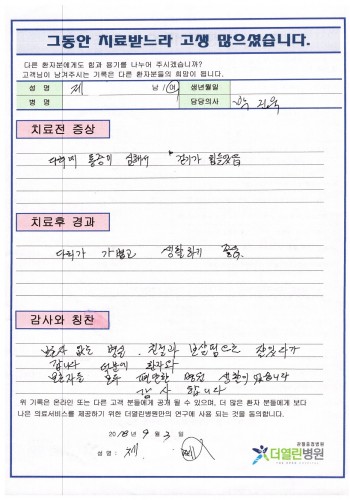 그동안 치료받느라 고생 많으셨습니다.
다른 환자분에게도 힘과 용기를 나누어 주시겠습니까?
고객님이 남겨주시는 기록은 다른 환자분들의 희망이 됩니다.
성 명 제 남 / 여 생년월일
병 명 담당의사 박진욱
치료전 증상
다리에 통증이 심해서 걷기가 힘들었음
치료후 경과
다리가 가볍고 생활하기 좋음.
감사와 칭찬
없는 병원 친절과 보살핌으로 잘있다가
갑니다 덕분에 환자와
보호자들 모두 편안한 병원 생활이 었습니다
감사합니다
위 기록은 온라인 또는 다른 고객 분들에게 공개 될 수 있으며, 더 많은 환자 분들에게 보다
나은 의료서비스를 제공하기 위한 더열린병원만의 연구에 사용 되는 것을 동의합니다.
2018년 9월 3일
성명 : 제
관절중점병원
더열린병원
THE OPEN HOSPITAL